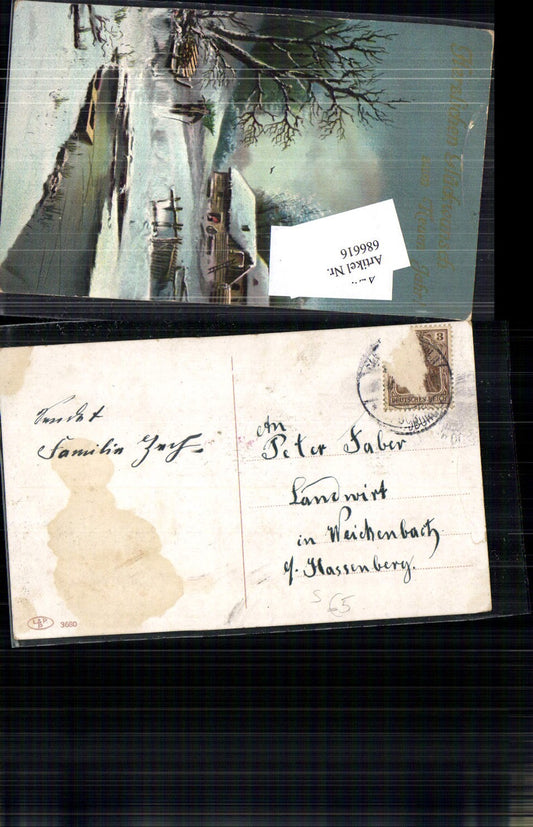 Herzlichen Glückwunsch
zum Neuen Jahre
Artikel Nr.
686616
3
DEUTSCHES REICH
Sendet
Familie Zech
An
Peter Faber
Landwirt
in Weichenbach
Hassenberg.
S 65
3680